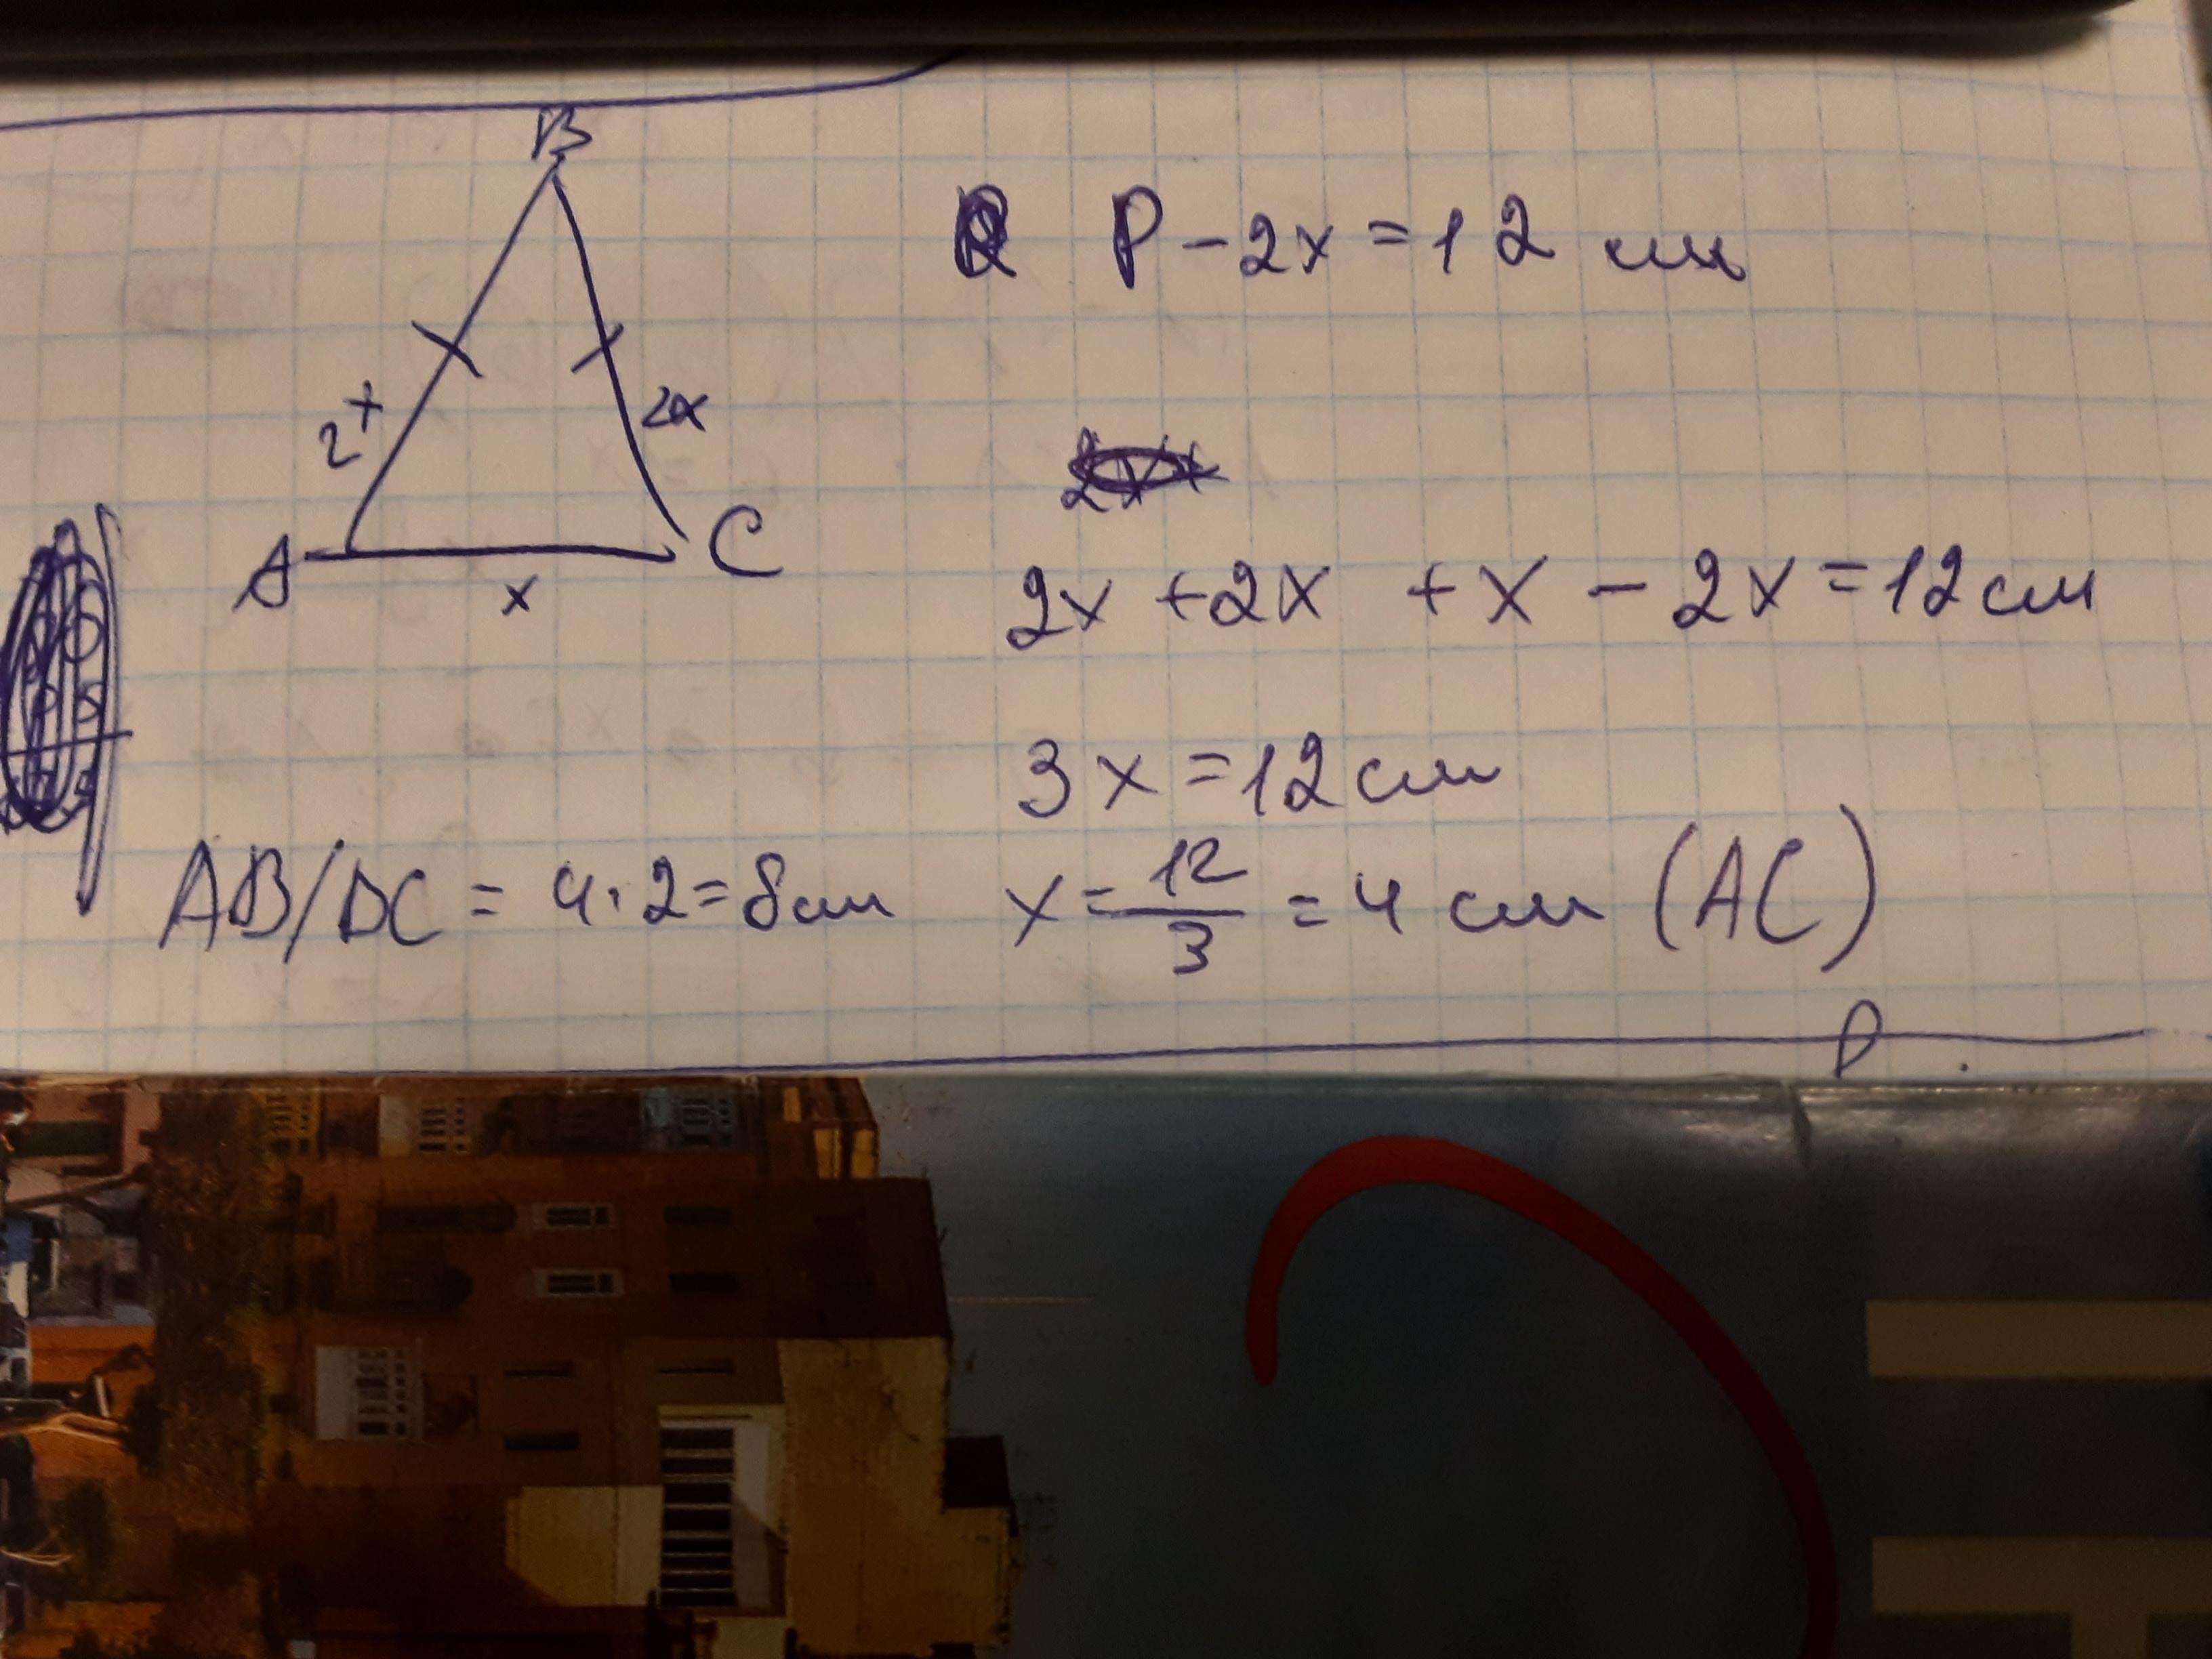 B
P - 2x = 12 см
2x
2x
A
C
x
2x + 2x + x - 2x = 12 см
3x = 12 см
AB/BC = 4 · 2 = 8 см
x = 12/3 = 4 см (AC)
P